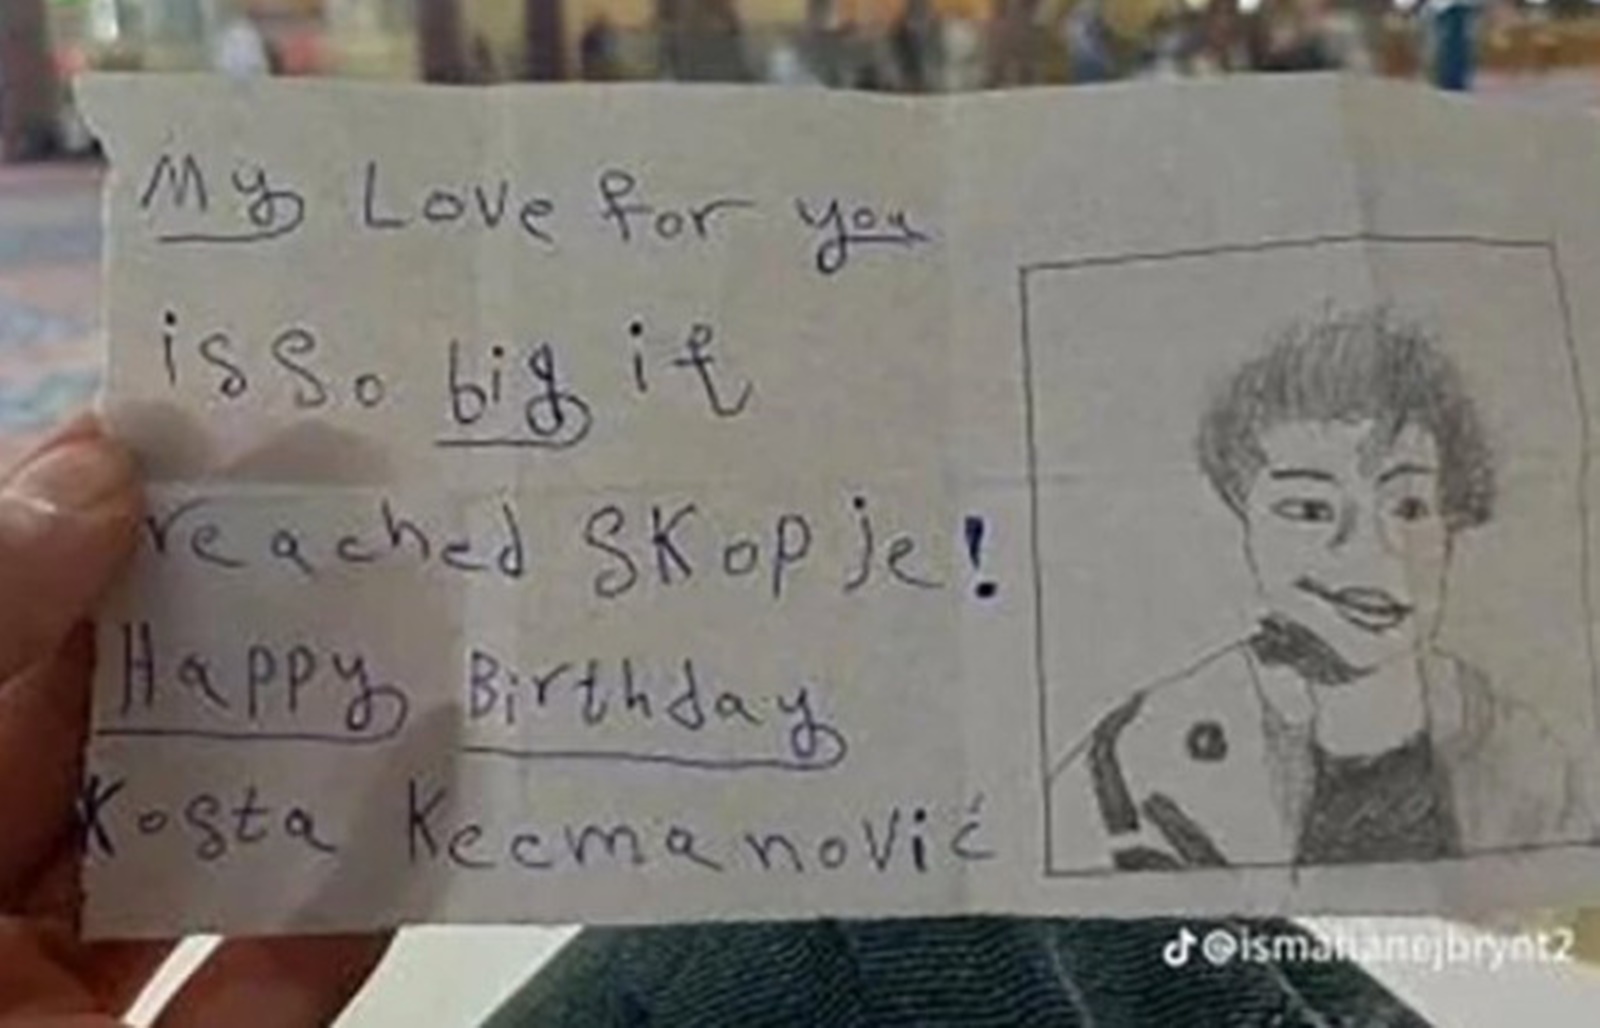 My Love for you
is So big it
reached SKopje!
Happy Birthday
Kosta Kecmanović